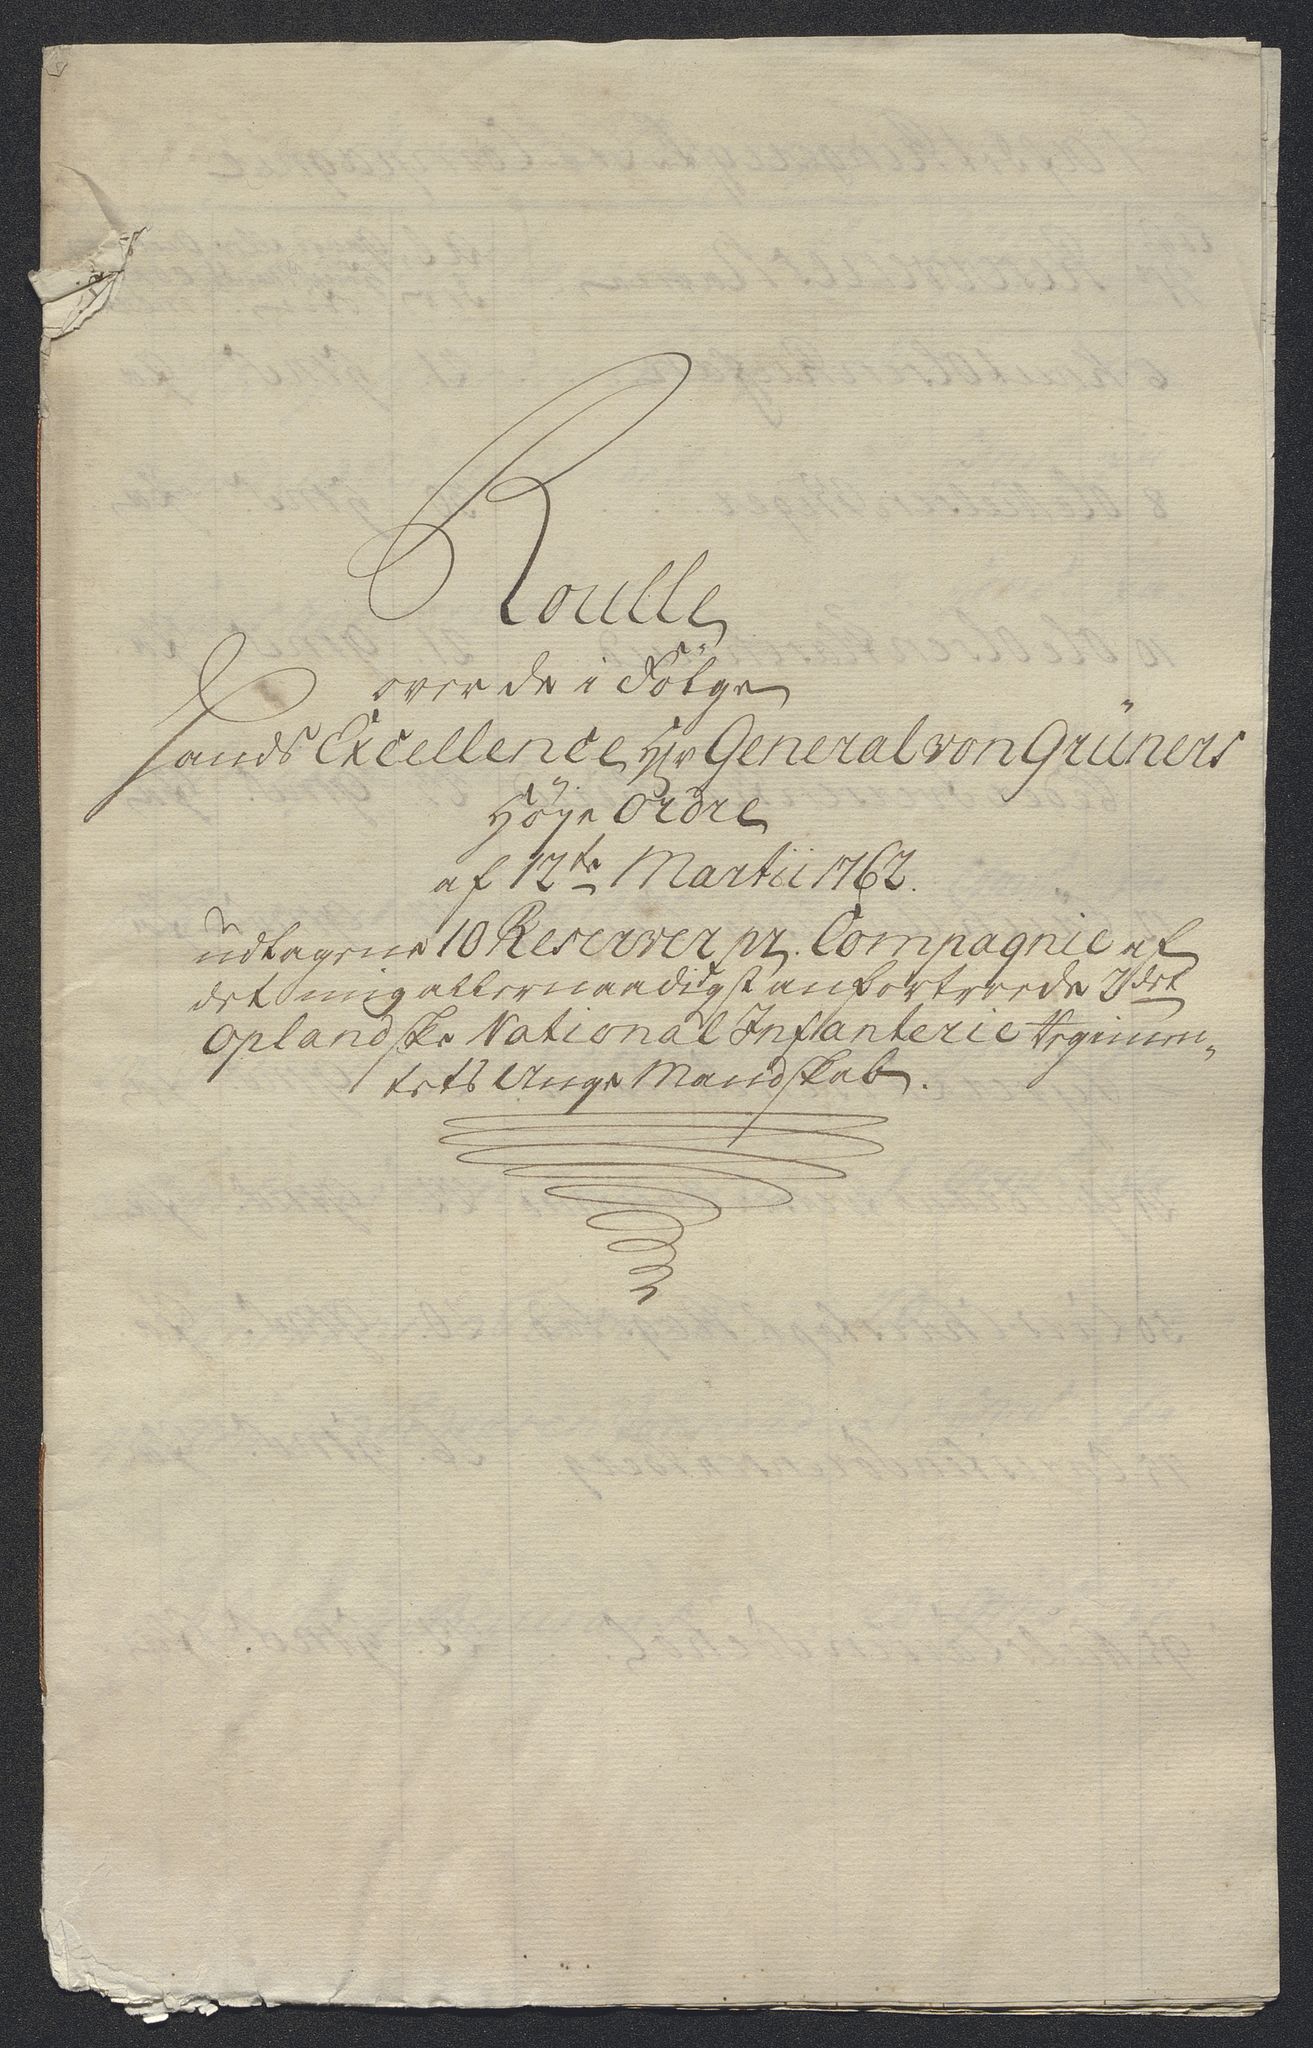 Roulle
over de i Følge
Hands Excellence Hr General von Grüners
Høÿe Ordre
af 12te Martii 1762.
udtagene 10 Reserver pr. Compagnie af
det mig allernaadigst anfortroede 2det
Oplandske National Infanterie Regimen-
tets Unge Mandskab.